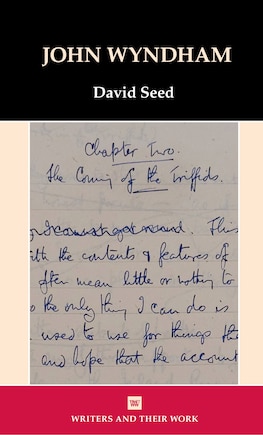 JOHN WYNDHAM
David Seed
Chapter Two.
The Coming of the Triffids.
This
with the contents & features of
often mean little or nothing to
the only thing I can do is
used to use for things
and hope that the account
WRITERS AND THEIR WORK